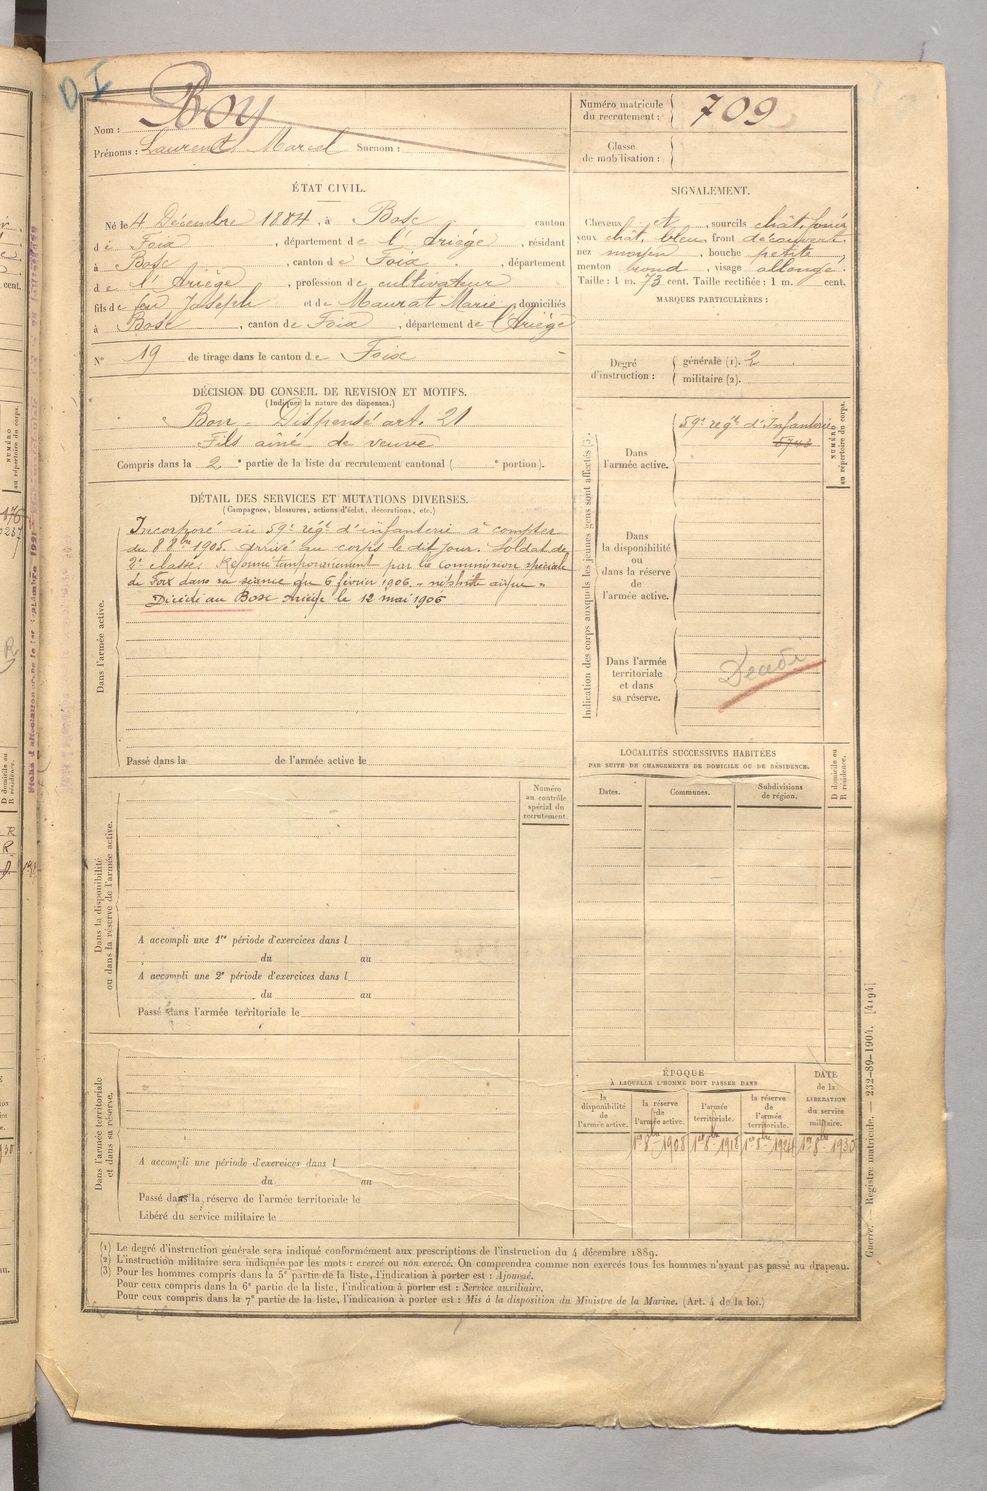 D I
Nom : Boy
Prénoms : Laurent Marcel Surnom :
Numéro matricule
du recrutement : 709
Classe
de mobilisation :
ÉTAT CIVIL.
Né le 4 Décembre 1884, à Bosc canton
de Foix, département de l'Ariège, résidant
à Bosc, canton de Foix, département
de l'Ariège, profession de cultivateur
fils de feu Joseph et de Maurat Marie, domiciliés
à Bosc, canton de Foix, département de l'Ariège
N° 19 de tirage dans le canton de Foix
SIGNALEMENT.
Cheveux et, sourcils chât. foncé
yeux chât. bleu, front découvert,
nez moyen, bouche petite,
menton rond, visage allongé.
Taille : 1 m. 73 cent. Taille rectifiée : 1 m. cent.
MARQUES PARTICULIÈRES :
Degré
d'instruction :
générale (1). 2
militaire (2).
DÉCISION DU CONSEIL DE REVISION ET MOTIFS.
(Indiquer la nature des dispenses.)
Bon - Dispensé art. 21
Fils aîné de veuve
Compris dans la 2e partie de la liste du recrutement cantonal ( e portion).
DÉTAIL DES SERVICES ET MUTATIONS DIVERSES.
(Campagnes, blessures, actions d'éclat, décorations, etc.)
Dans l'armée active.
Incorporé au 59e régt d'infanterie à compter
du 8 8bre 1905. Arrivé au corps le dit jour. Soldat de
2e classe. Réformé temporairement par la commission spéciale
de Foix dans sa séance du 6 février 1906. « néphrite aigue »
Décédé au Bosc Ariège le 12 mai 1906
Passé dans la de l'armée active le
Indication des corps auxquels les jeunes gens sont affectés (3).
NUMÉRO
au répertoire du corps.
Dans
l'armée active.
59e regt d'Infanterie
Dans
la disponibilité
ou
dans la réserve
de
l'armée active.
Dans l'armée
territoriale
et dans
sa réserve.
Décédé
LOCALITÉS SUCCESSIVES HABITÉES
PAR SUITE DE CHANGEMENTS DE DOMICILE OU DE RÉSIDENCE.
Dates.
Communes.
Subdivisions
de région.
D domicile ou
R résidence.
Numéro
au contrôle
spécial du
recrutement.
Dans la disponibilité
ou dans la réserve de l'armée active.
A accompli une 1re période d'exercices dans l
du au
A accompli une 2e période d'exercices dans l
du au
Passé dans l'armée territoriale le
Dans l'armée territoriale
et dans sa réserve.
A accompli une période d'exercices dans l
du au
Passé dans la réserve de l'armée territoriale le
Libéré du service militaire le
ÉPOQUE
À LAQUELLE L'HOMME DOIT PASSER DANS
la
disponibilité
de
l'armée active.
la réserve
de
l'armée active.
l'armée
territoriale.
la réserve
de
l'armée
territoriale.
DATE
de la
LIBÉRATION
du service
militaire.
1er 8bre 1908
1er 8bre 1918
1er 8bre 1924
1er 8bre 1930
(1) Le degré d'instruction générale sera indiqué conformément aux prescriptions de l'instruction du 4 décembre 1889.
(2) L'instruction militaire sera indiquée par les mots : exercé ou non exercé. On comprendra comme non exercés tous les hommes n'ayant pas passé au drapeau.
(3) Pour les hommes compris dans la 5e partie de la liste, l'indication à porter est : Ajourné.
Pour ceux compris dans la 6e partie de la liste, l'indication à porter est : Service auxiliaire.
Pour ceux compris dans la 7e partie de la liste, l'indication à porter est : Mis à la disposition du Ministre de la Marine. (Art. 4 de la loi.)
Guerre. — Registre matricule. — 232-89-1904. [4194]